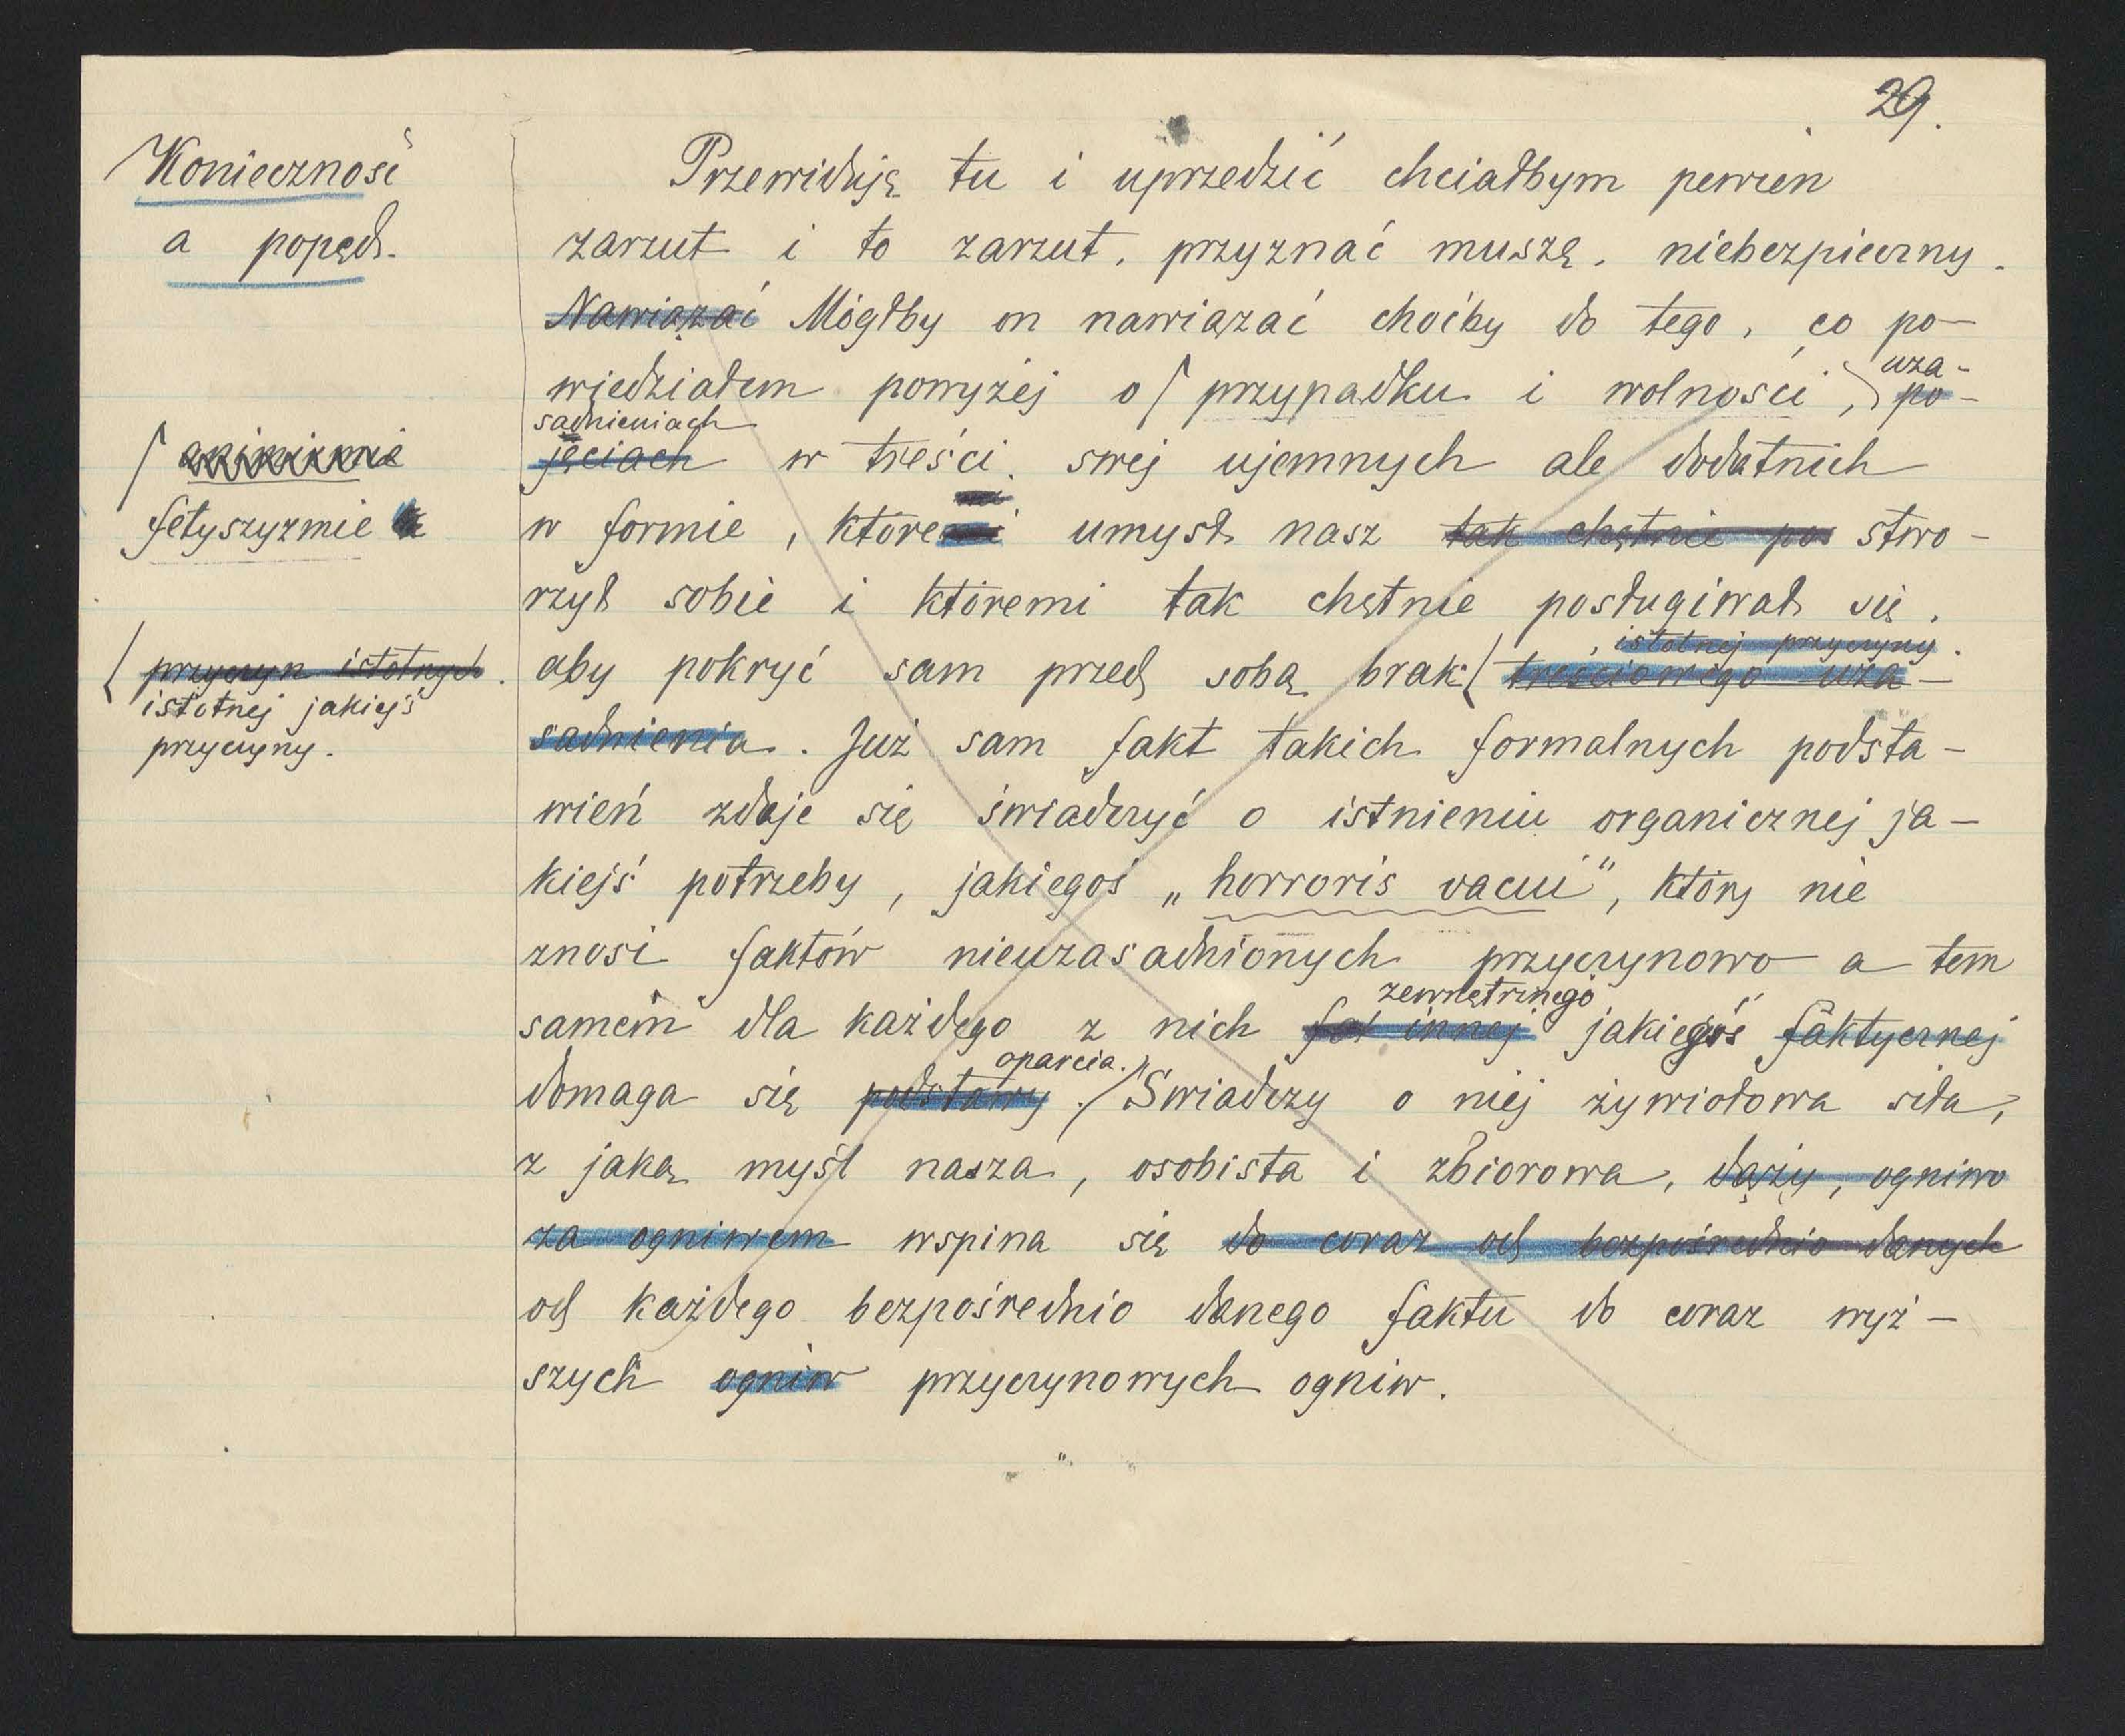 29.
Konieczność
a popęd.
Przewiduję tu i uprzedzić chciałbym pewien
zarzut i to zarzut, przyznać muszę, niebezpieczny.
Nawiązać Mógłby on nawiązać choćby do tego, co po-
wiedziałem powyżej o przypadku i wolności, uza-
po-
sadnieniach
jęciach w treści swej ujemnych ale dodatnich
animizmie
fetyszyzmie
w formie, które umysł nasz tak chętnie pos stwo-
rzył sobie i któremi tak chętnie posługiwał się,
istotnej przyczyny.
aby pokryć sam przed sobą brak treściowego uza-
przyczyn istotnych.
istotnej jakiejś
przyczyny.
sadnienia. Już sam fakt takich formalnych podsta-
wień zdaje się świadczyć o istnieniu organicznej ja-
kiejś potrzeby, jakiegoś „horroris vacui", który nie
znosi faktów nieuzasadnionych przyczynowo a tem
zewnętrznego
samem dla każdego z nich innej jakiegoś faktycznej
oparcia.
domaga się podstawy. Świadczy o niej żywiołowa siła,
z jaką myśl nasza, osobista i zbiorowa, dąży, ogniwo
za ogniwem wspina się do coraz od bezpośrednio danych
od każdego bezpośrednio danego faktu do coraz wyż-
szych ogniw przyczynowych ogniw.